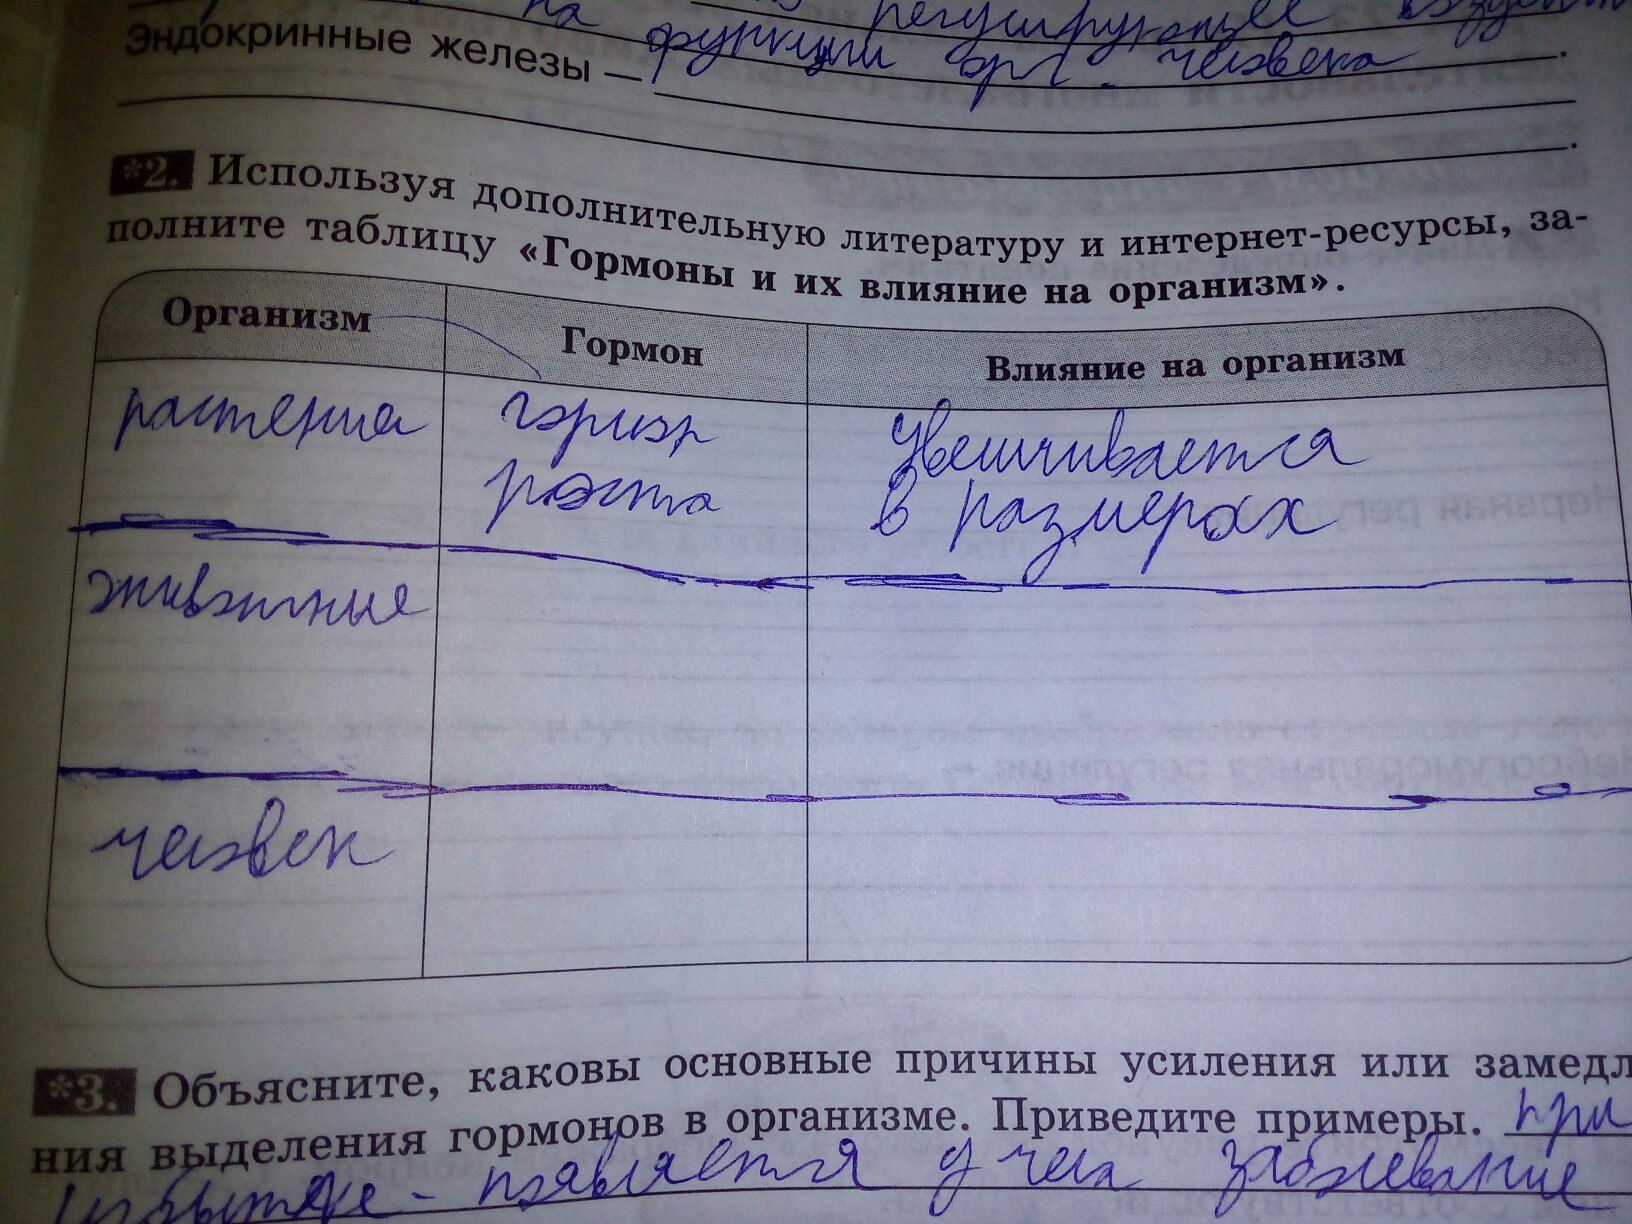 на регулирующее
Эндокринные железы — функции орг. человека .
.
*2. Используя дополнительную литературу и интернет-ресурсы, за-
полните таблицу «Гормоны и их влияние на организм».
Организм Гормон Влияние на организм
растения гормон Увеличивается
роста в размерах
животные
человек
*3. Объясните, каковы основные причины усиления или замедл
ния выделения гормонов в организме. Приведите примеры. при
избытке - появляется у чел заболевание